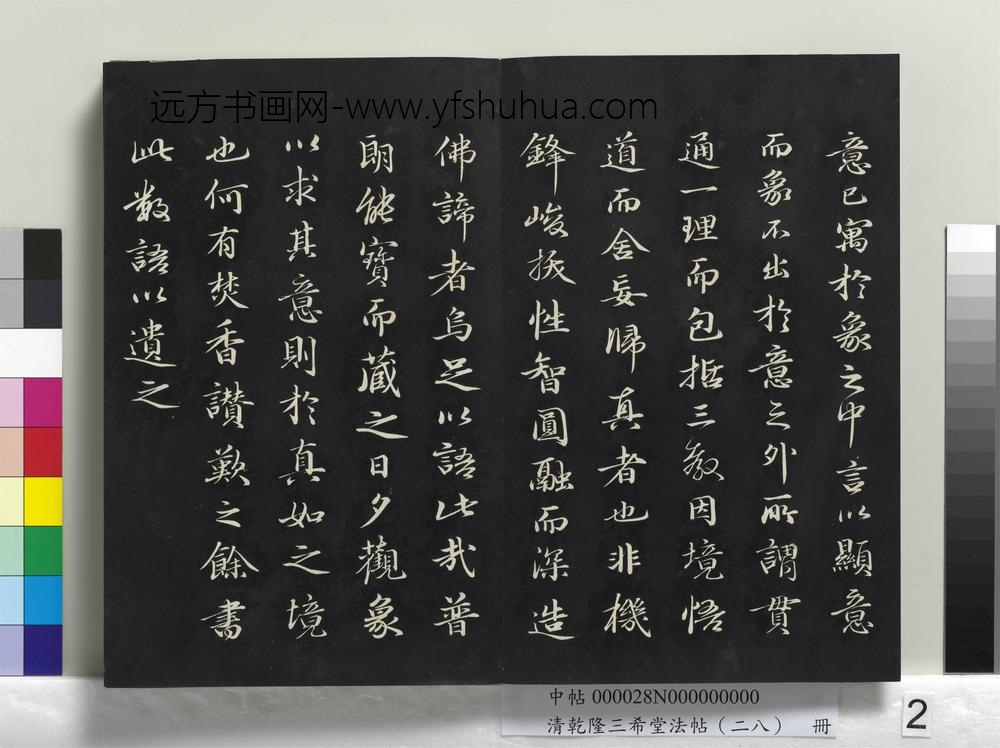 远方书画网-www.yfshuhua.com
意已寓於象之中言以顯意
而象不出於意之外所謂貫
通一理而包括三教因境悟
道而舍妄歸真者也非機
鋒峻拔性智圓融而深造
佛諦者烏足以語此哉普
朗能寶而藏之日夕觀象
以求其意則於真如之境
也何有焚香讚歎之餘書
此數語以遺之
中帖 000028N000000000
清乾隆三希堂法帖（二八） 冊
2